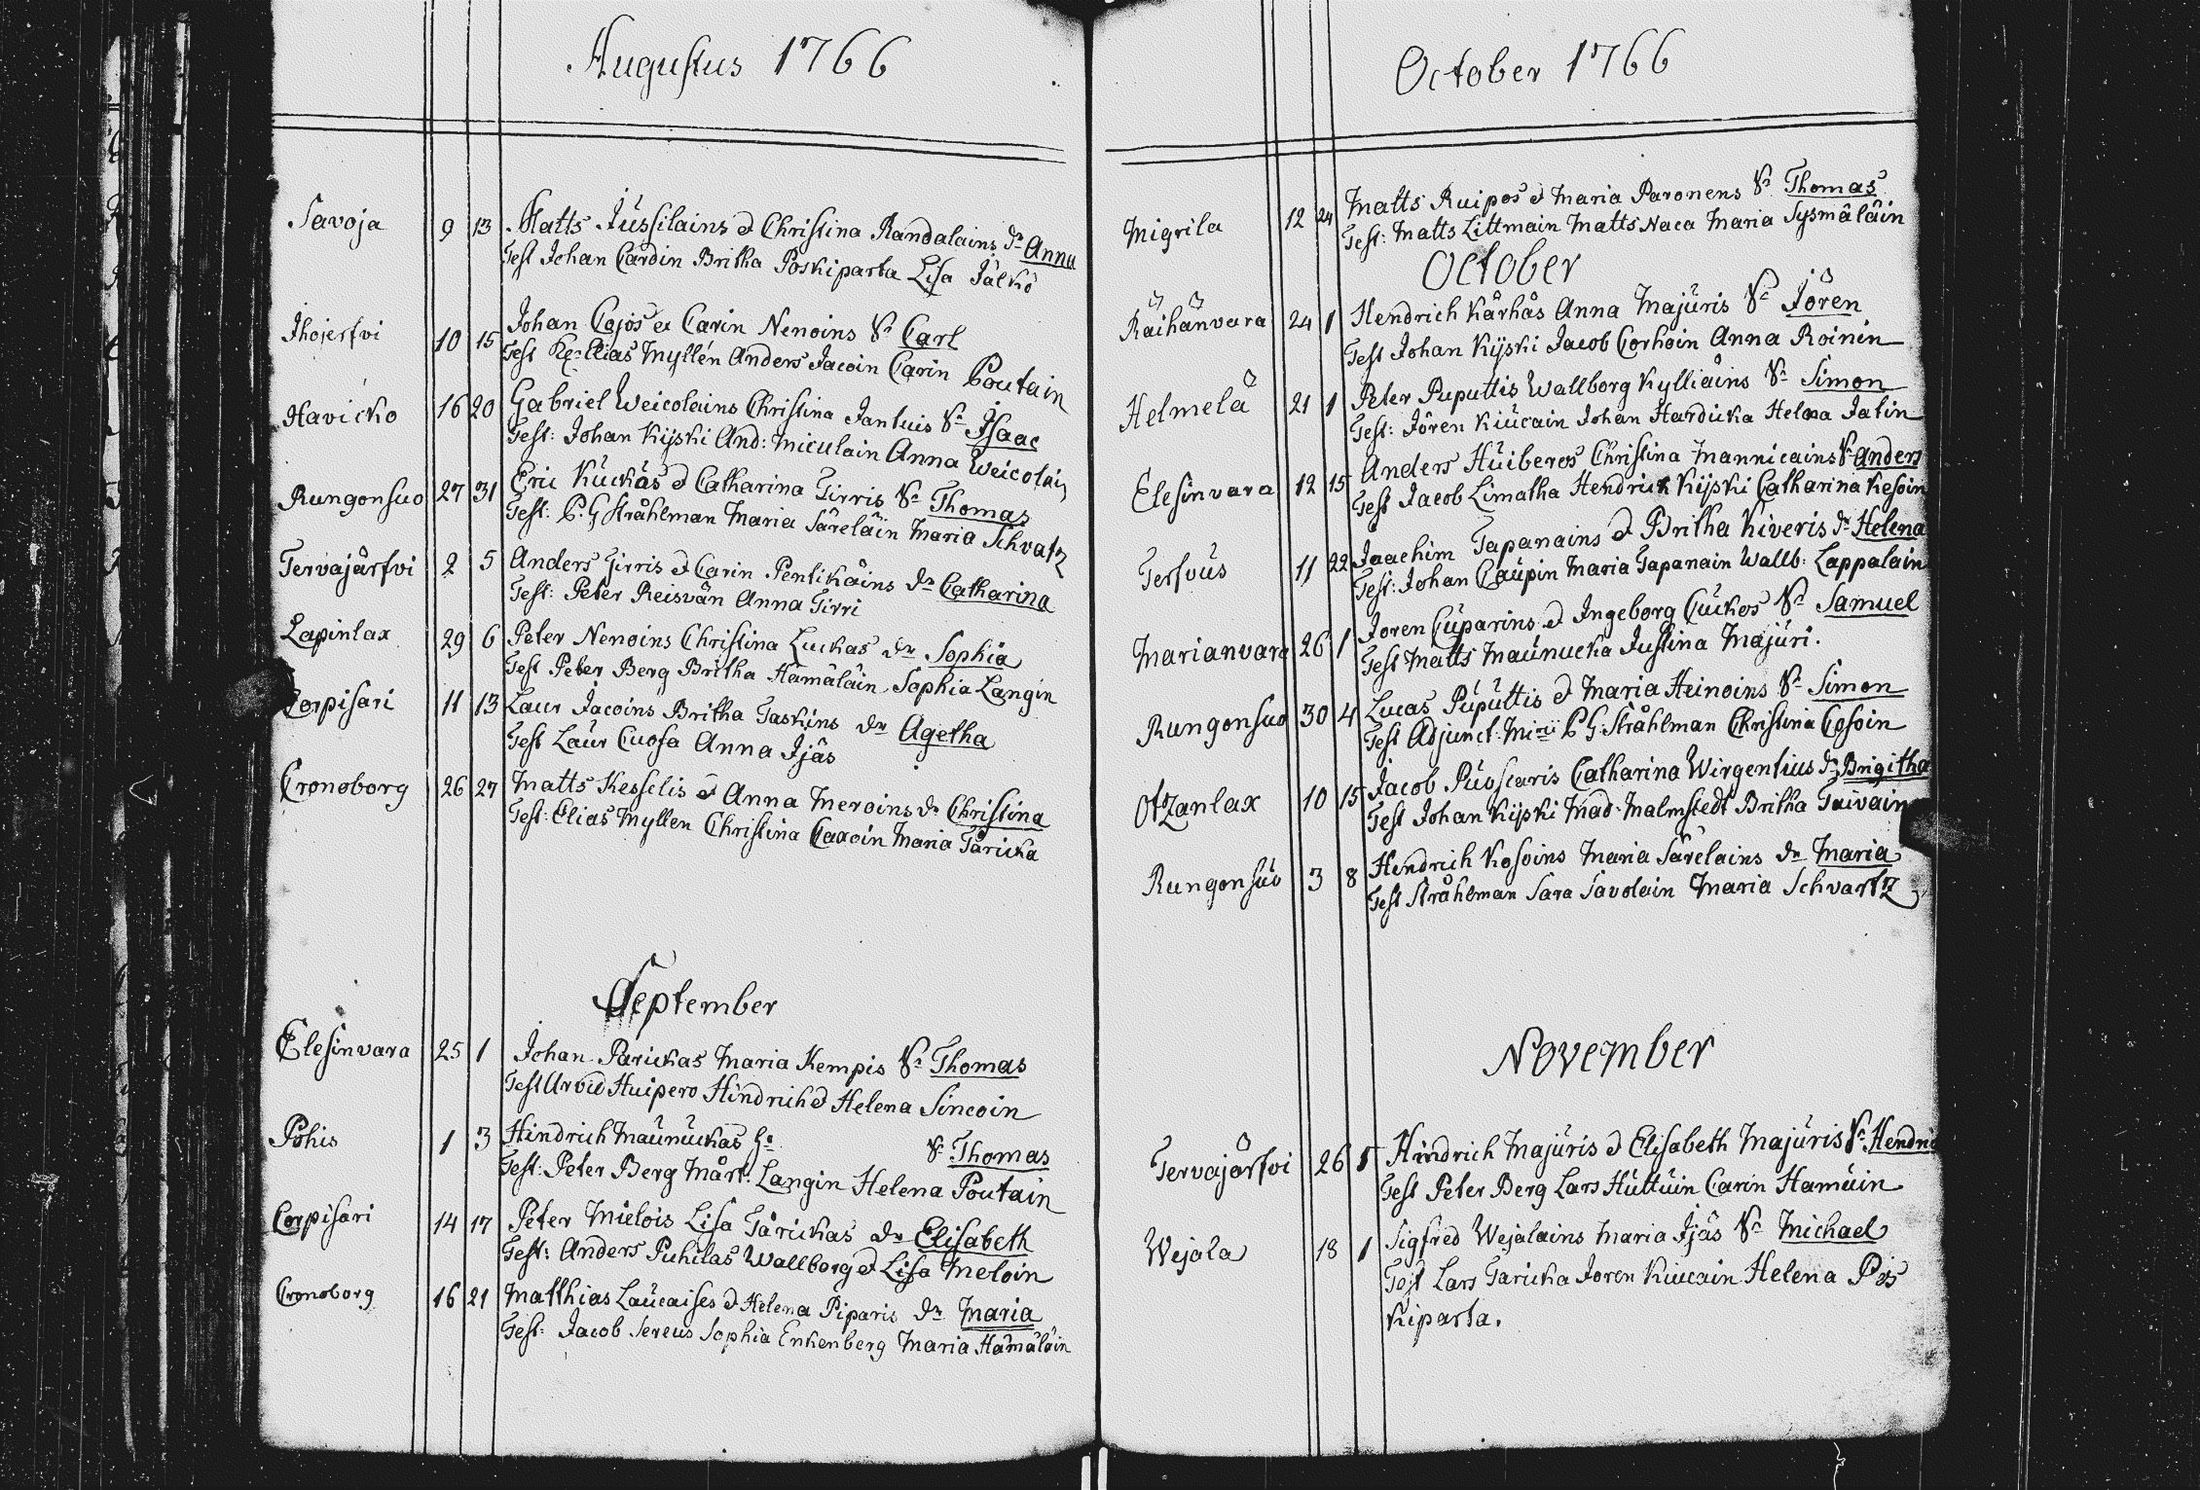 Augustus 1766
Savoja 9 13 Matts Jüssilains & Christina Randalains dr Anna
Test Johan Cardin Britha Poskiparta Lisa Jälkö
Ihojerfvi 10 15 Johan Cajos & Carin Nenoins Sr Carl
Test Elias Myllén Anders Jacoin Carin Poutain
Havicko 16 20 Gabriel Weicolains Christina Jantuis Sr Isaac
Test: Johan Kijski And: Miculain Anna Weicolain
Rungonsuo 27 31 Eric Kückäs & Catharina Tirris Sr Thomas
Test: P. G Stråhlman Maria Säreläin Maria Schvatz
Tervajärfvi 2 5 Anders Tirris & Carin Pentikäins dr Catharina
Test: Peter Reisvän Anna Tirri
Lapinlax 29 6 Peter Nenoins Christina Luckas dr Sophia
Test Peter Berg Britha Hämäläin Sophia Langin
Corpisari 11 13 Laur Jacoins Britha Taskins dr Agetha
Test Laur Cuosa Anna Ijäs
Cronoborg 26 27 Matts Kesselis & Anna Meroins dr Christina
Test: Elias Myllen Christina Caxoin Maria Tåricka
September
Elesinvara 25 1 Johan Parickas Maria Kempis Sr Thomas
Test Arvid Huipero Hindrich & Helena Sincoin
Pohis 1 3 Hindrich Maünückas H: Sr Thomas
Test: Peter Berg Mårt: Langin Helena Poutain
Corpisari 14 17 Peter Mielois Lisa Tårickas dr Elisabeth
Test: Anders Puhilas Wallborg & Lisa Meloin
Cronoborg 16 21 Matthias Laücaises & Helena Piparis dr Maria
Test: Jacob Sereus Sophia Enkenberg Maria Hämäläin
October 1766
Migrila 12 24 Matts Ruipos & Maria Paronens Sr Thomas
Test: Matts Littmain Matts Naca Maria Sysmäläin
October
Räihänvara 24 1 Hendrich Kärhäs Anna Majüris Sr Jören
Test Johan Kijski Jacob Corhoin Anna Roinin
Helmelä 21 1 Peter Puputtis Wallborg Kylliäins Sr Simon
Test: Jören Kiücain Johan Hardicka Helena Jatin
Elesinvara 12 15 Anders Hüiberos Christina Mannicains Sr Anders
Test Jacob Limatha Hendrich Kijski Catharina Kesoin
Terfvüs 11 22 Joachim Tapanains & Britha Kiveris dr Helena
Test: Johan Caüpin Maria Tapanain Wallb: Lappalain
Marianvara 26 1 Joren Cüparins & Ingeborg Cückos Sr Samuel
Test Matts Maünucka Justina Majüri.
Rungonsuo 30 4 Lucas Püpüttis & Maria Heinoins Sr Simon
Test Adjunct: Mirii P G: Stråhlman Christina Cosoin
Otzanlax 10 15 Jacob Püsscaris Catharina Wirgentius dr Brigitha
Test Johan Kijski Mad: Malmstedt Britha Taivain
Rungonsüo 3 8 Hendrich Kosoins Maria Särelains dr Maria
Test Stråhlman Sara Savolain Maria Schvartz
November
Tervajärfvi 26 1 Hindrich Majüris & Elisabeth Majüris Sr Hendri
Test Peter Berg Lars Hüttüin Carin Hamüin
Wejala 18 1 Sigfred Wejalains Maria Ijäs Sr Michael
Test Lars Taricka Joren Kiucain Helena Pos
kiparta.